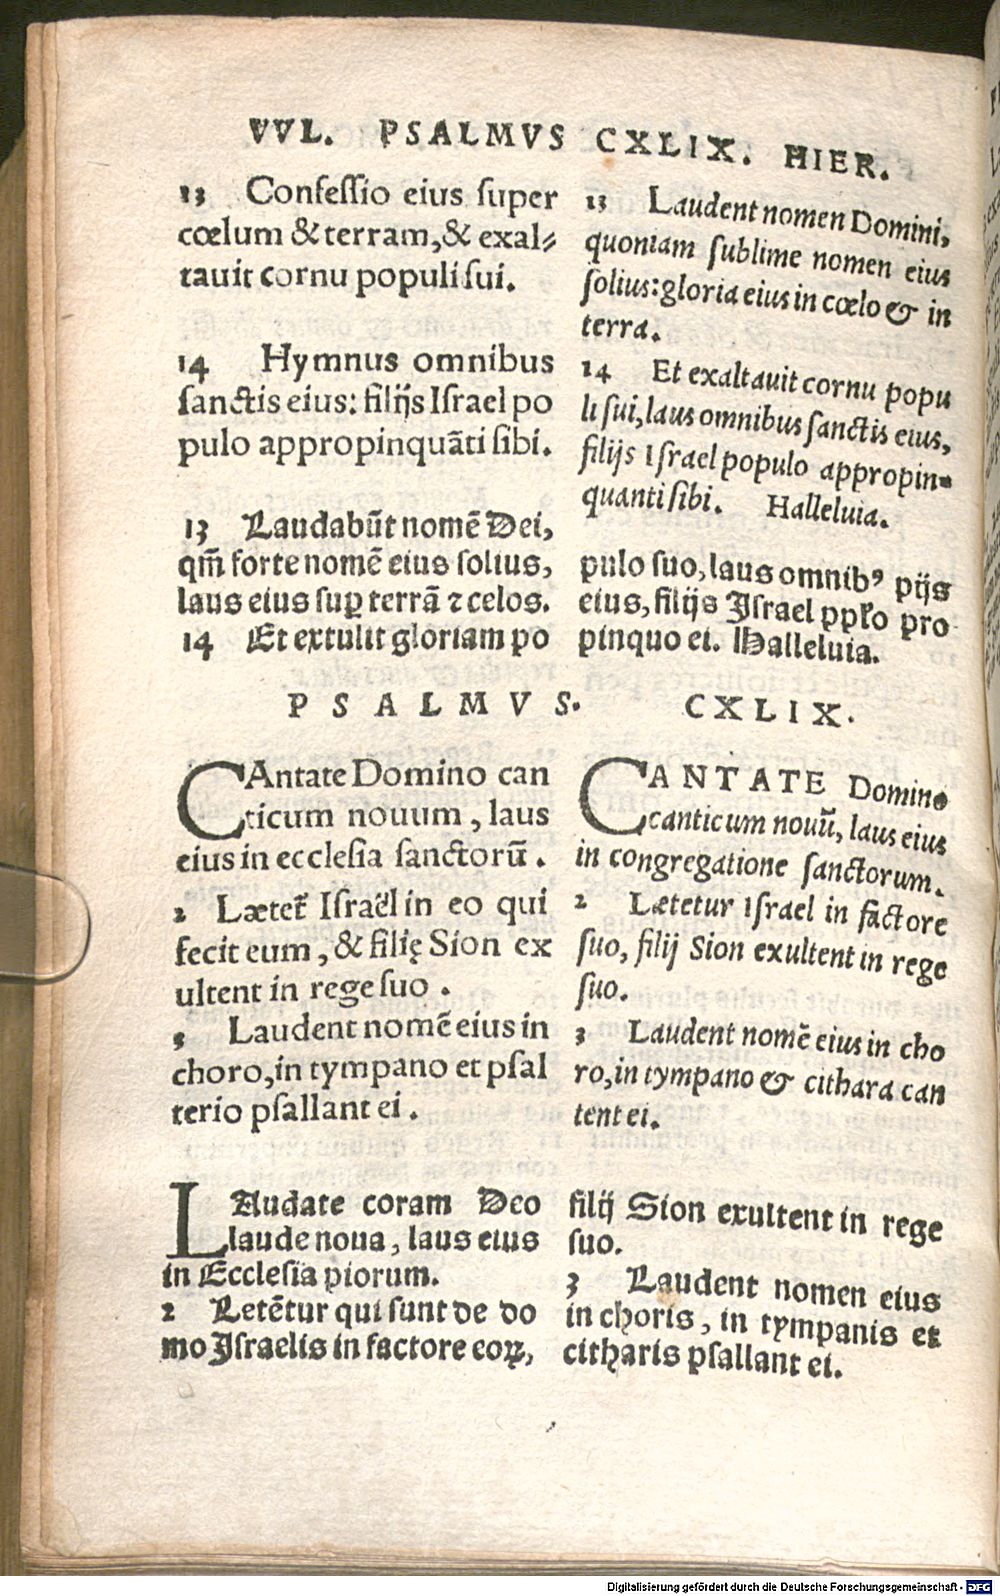 VVL. PSALMVS CXLIX. HIER.
13 Confessio eius super
cœlum & terram, & exal-
tauit cornu populi sui.
14 Hymnus omnibus
sanctis eius: filijs Israel po
pulo appropinquāti sibi.
13 Laudent nomen Domini,
quoniam sublime nomen eius
solius: gloria eius in cœlo & in
terra.
14 Et exaltauit cornu popu
li sui, laus omnibus sanctis eius,
filijs Israel populo appropin-
quanti sibi. Halleluia.
13 Laudabūt nomē Dei,
qm̄ forte nomē eius solius,
laus eius suꝑ terrā ⁊ celos.
14 Et extulit gloriam po
pulo suo, laus omnibꝰ pijs
eius, filijs Israel ppło pro
pinquo ei. Halleluia.
PSALMVS. CXLIX.
CAntate Domino can
ticum nouum, laus
eius in ecclesia sanctorū.
2 Lætet̄ Israël in eo qui
fecit eum, & filię Sion ex
ultent in rege suo.
3 Laudent nomē eius in
choro, in tympano et psal
terio psallant ei.
CANTATE Domino
canticum nouū, laus eius
in congregatione sanctorum.
2 Lætetur Israel in factore
suo, filij Sion exultent in rege
suo.
3 Laudent nomē eius in cho
ro, in tympano & cithara can
tent ei.
LAudate coram Deo
laude noua, laus eius
in Ecclesia piorum.
2 Letētur qui sunt de do
mo Israelis in factore eoꝝ,
filij Sion exultent in rege
suo.
3 Laudent nomen eius
in choris, in tympanis et
citharis psallant ei.
Digitalisierung gefördert durch die Deutsche Forschungsgemeinschaft - DFG